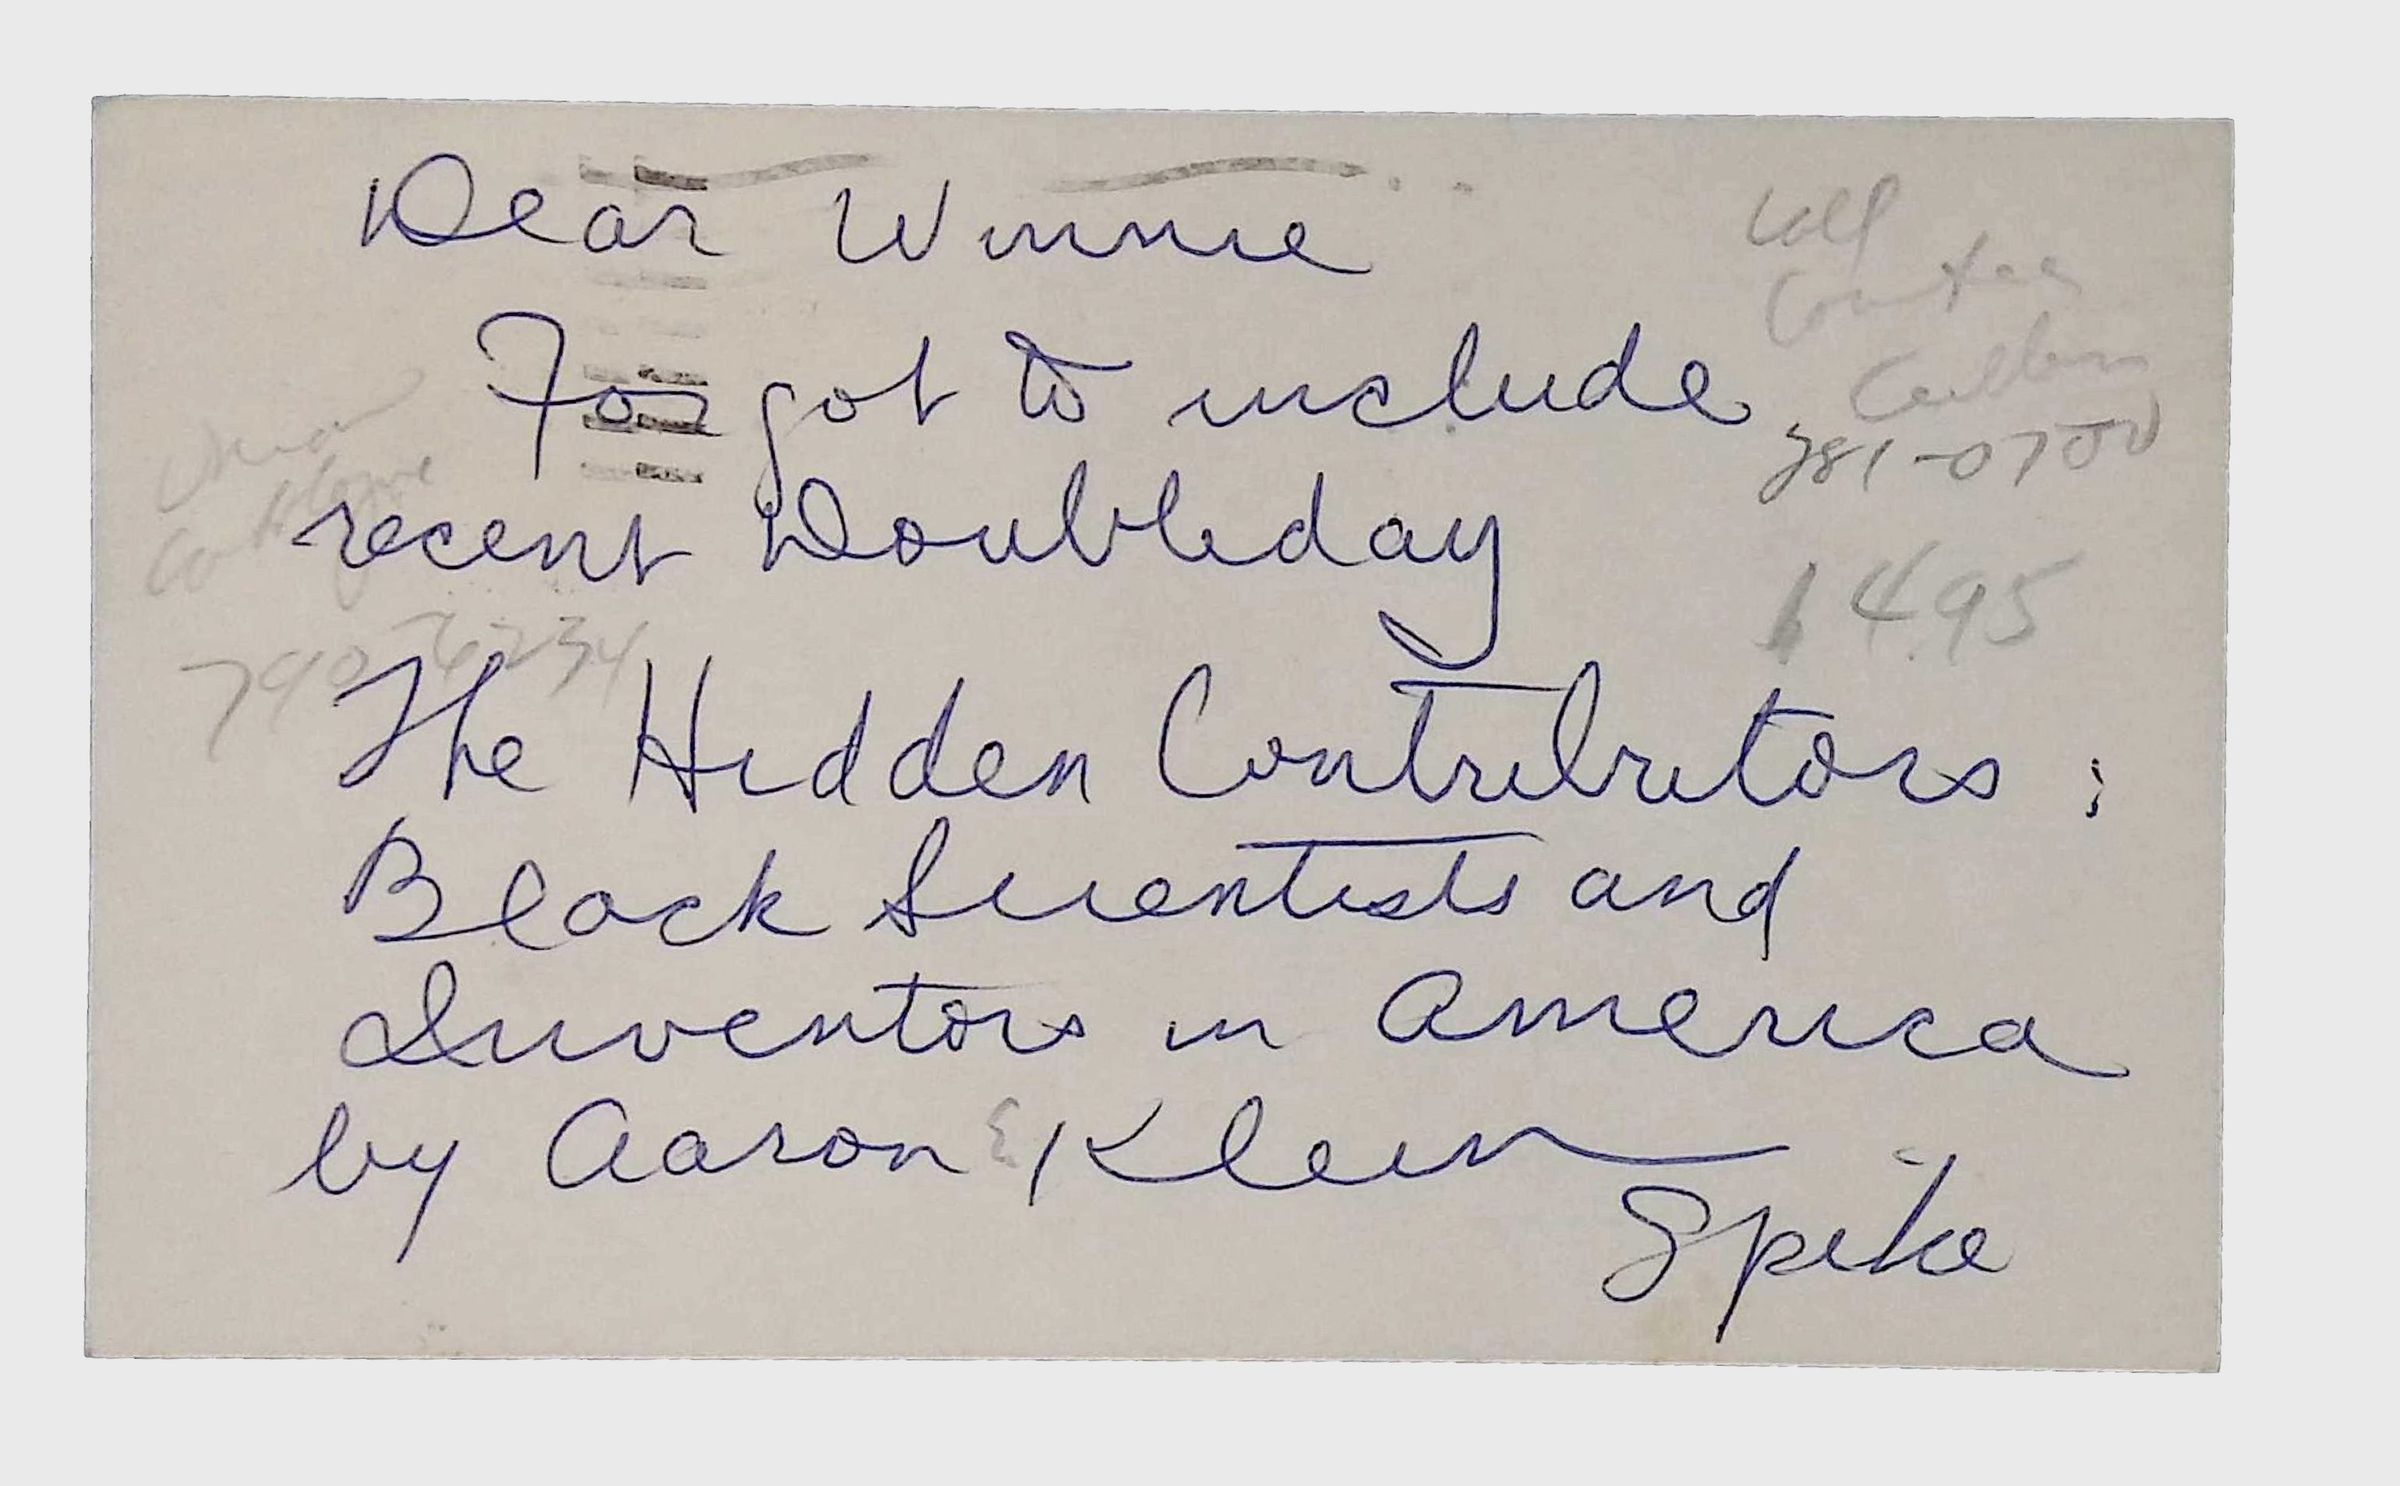 Dear Winnie
Forgot to include
recent Doubleday
The Hidden Contributors :
Black Scientists and
Inventors in America
by Aaron E Klein
Spike
Call
Countee
Cullen
281-0700
1495
790-6234